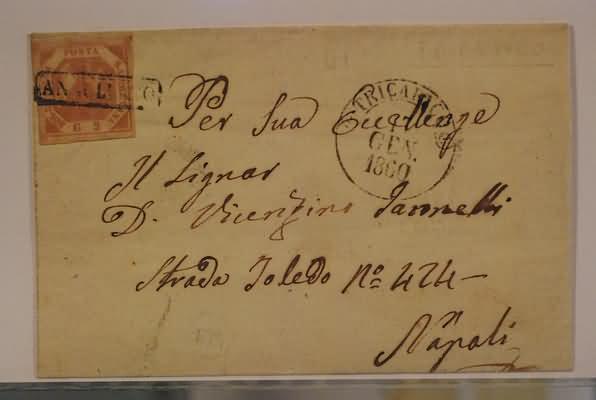 POSTA
ANNULLATO
G 2
TRICARICO
GEN.
1860
Per Sua Eccellenza
Il Signor
D. Vicenzino Iannelli
Strada Toledo No 424
Napoli